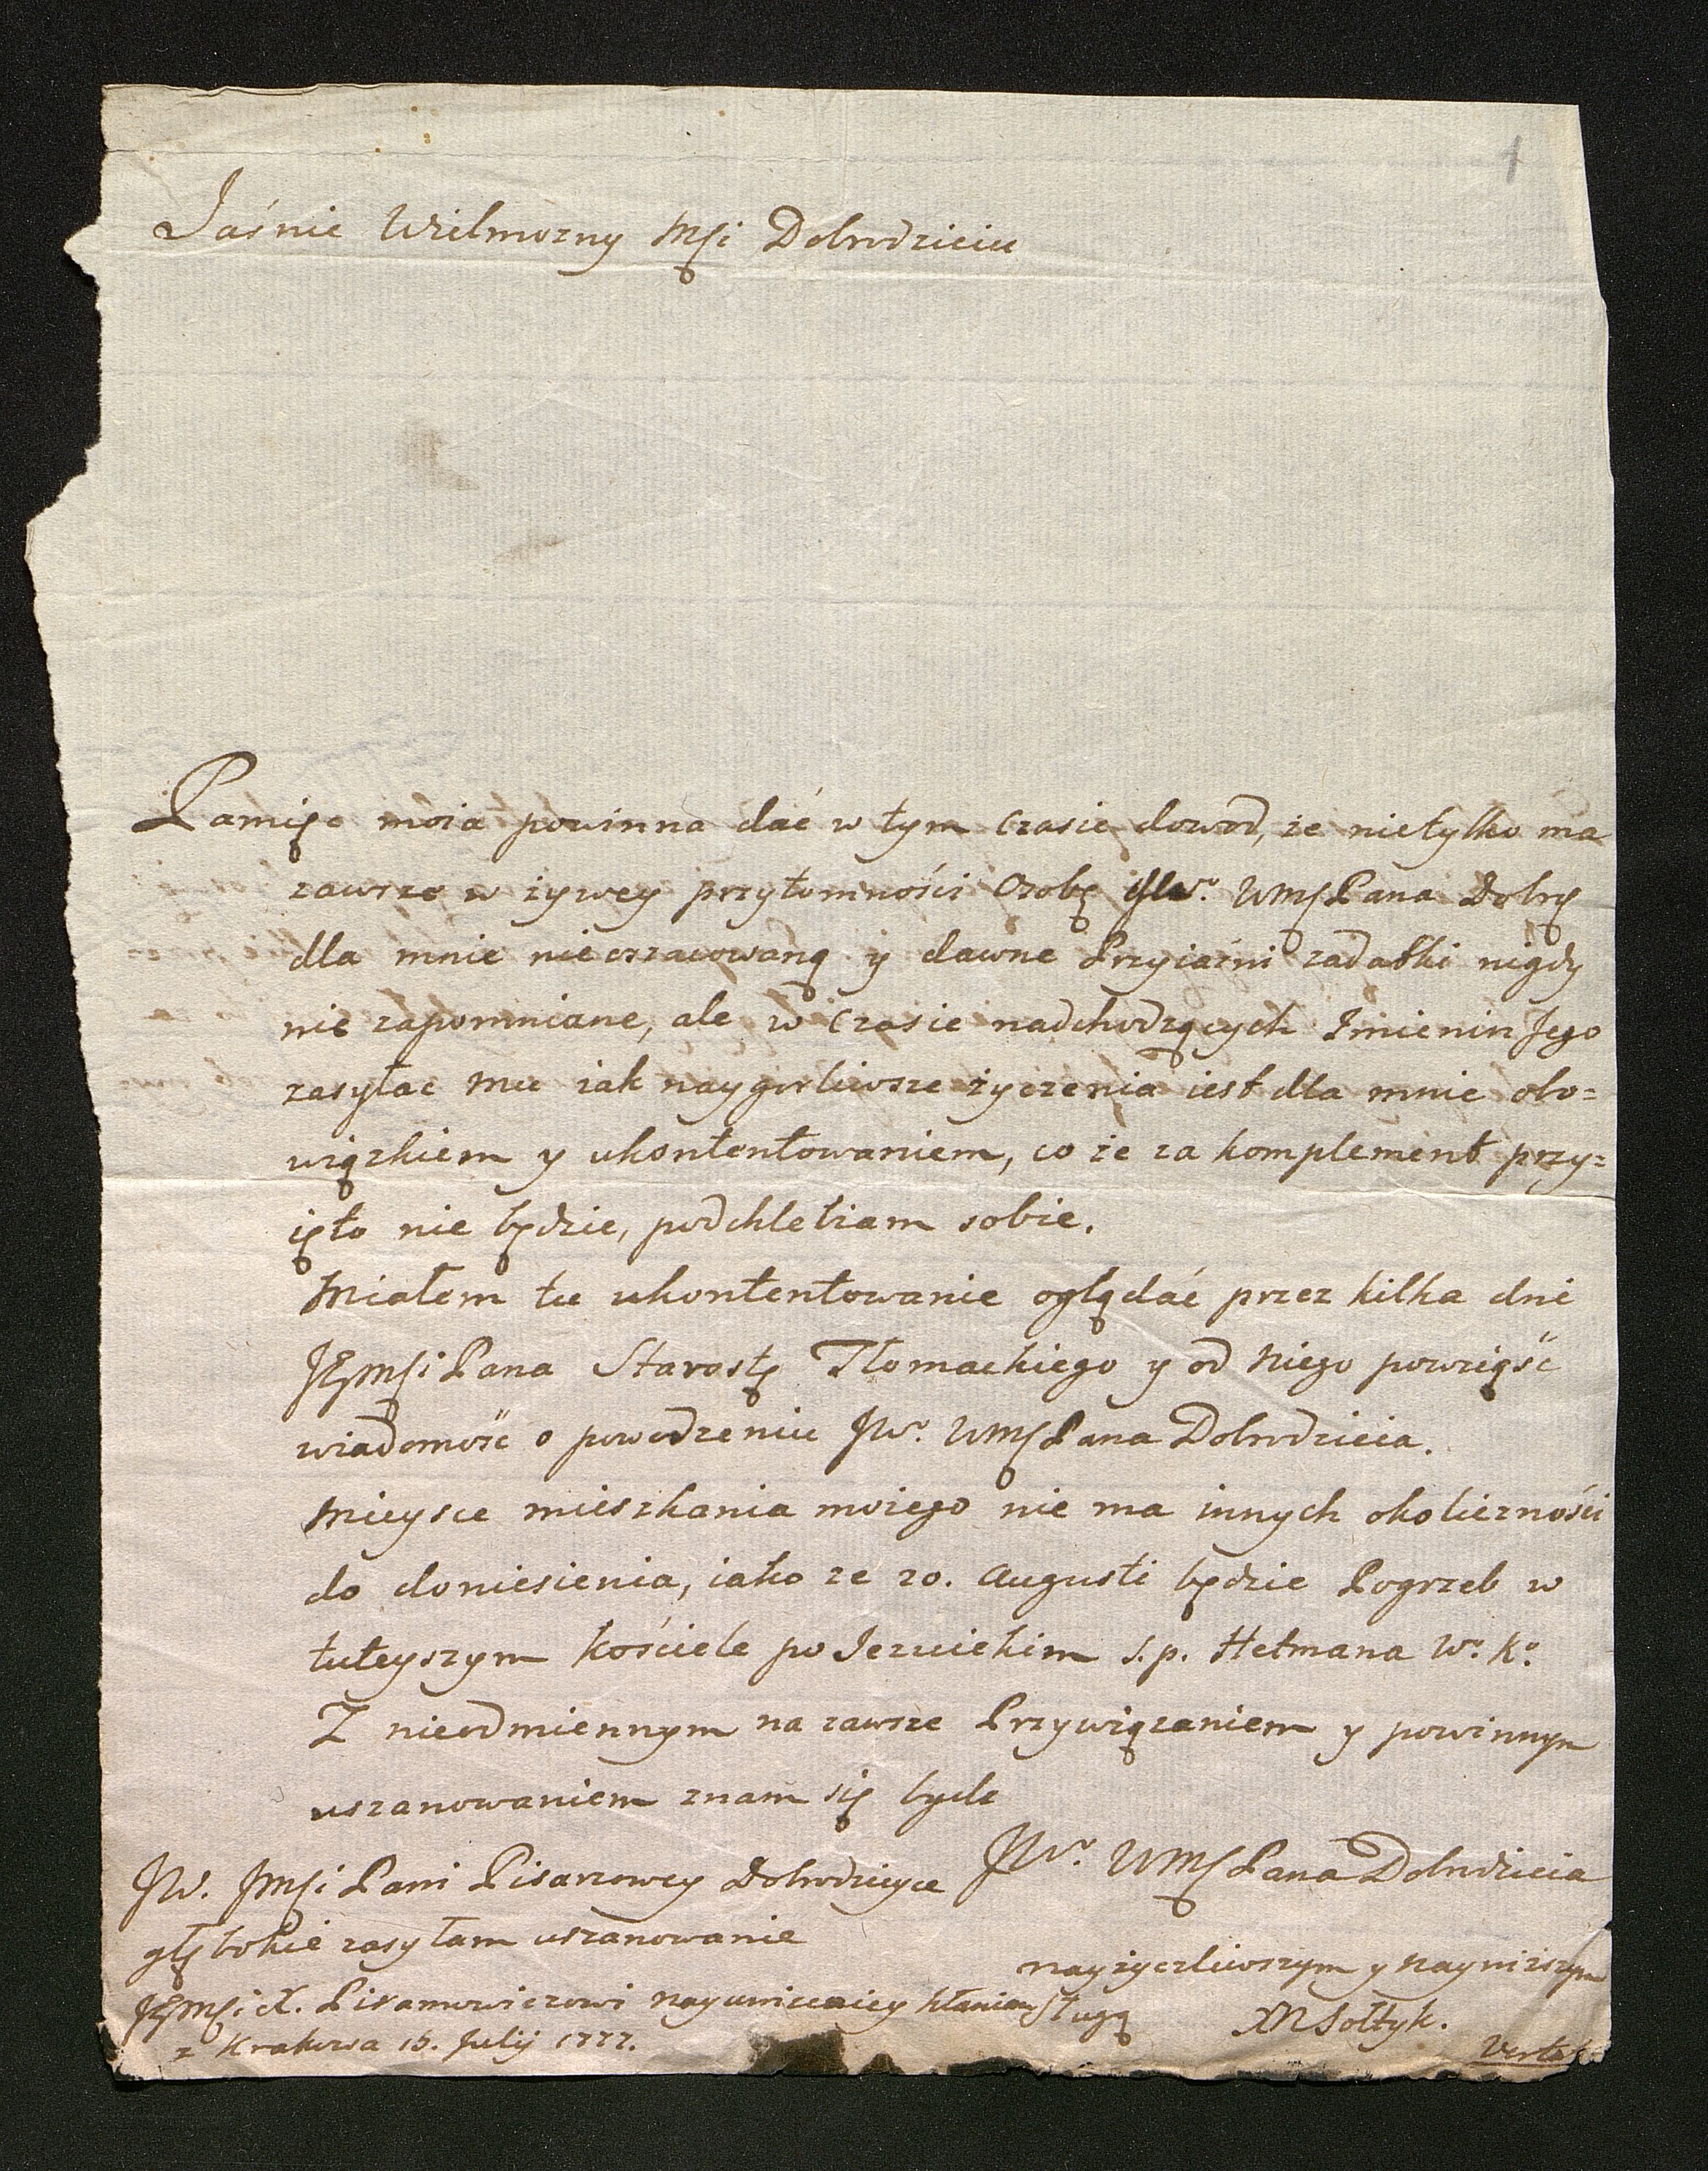 1
Jaśnie Wielmozny Msci Dobrodzieiu
Pamięc moia powinna dać w tym czasie dowod, że nietylko ma
zawsze w żywey przytomności Osobę JWo. WMsc Pana Dobrę
dla mnie nieoszacowaną y dawne Przyiaźni zadatki nigdy
nie zapomniane, ale w czasie nadchodzących Imienin Jego
zasyłac mu iak naygorliwsze życzenia iest dla mnie obo=
wiązkiem y ukontentowaniem, co że za komplement przy=
ięto nie będzie, podchlebiam sobie.
Miałem tu ukontentowanie oglądać przez kilka dni
JEgMsci Pana Starostę Tłomackiego y od Niego powziąść
wiadomość o powodzeniu JWo. WMsc Pana Dobrodzieia.
Mieysce mieszkania moiego nie ma innych okoliczności
do doniesienia, iako ze 20. Augusti będzie Pogrzeb w
tuteyszym kościele po Jezuickim s. p. Hetmana Wo. Ko.
Z nieodmiennym na zawsze Przywiązaniem y powinnym
uszanowaniem znam się bydz
JWo. WMsc Pana Dobrodzieia
nayżyczliwszym y naynizszym
Sługą
XN Sołtyk.
JW. JMsci Pani Pisarzowey Dobrodzieyce
głębokie zasyłam uszanowanie
JEgMsci X. Piramowiczowi nayunizeniey kłaniam
z Krakowa 15. Julij 1777.
Verte